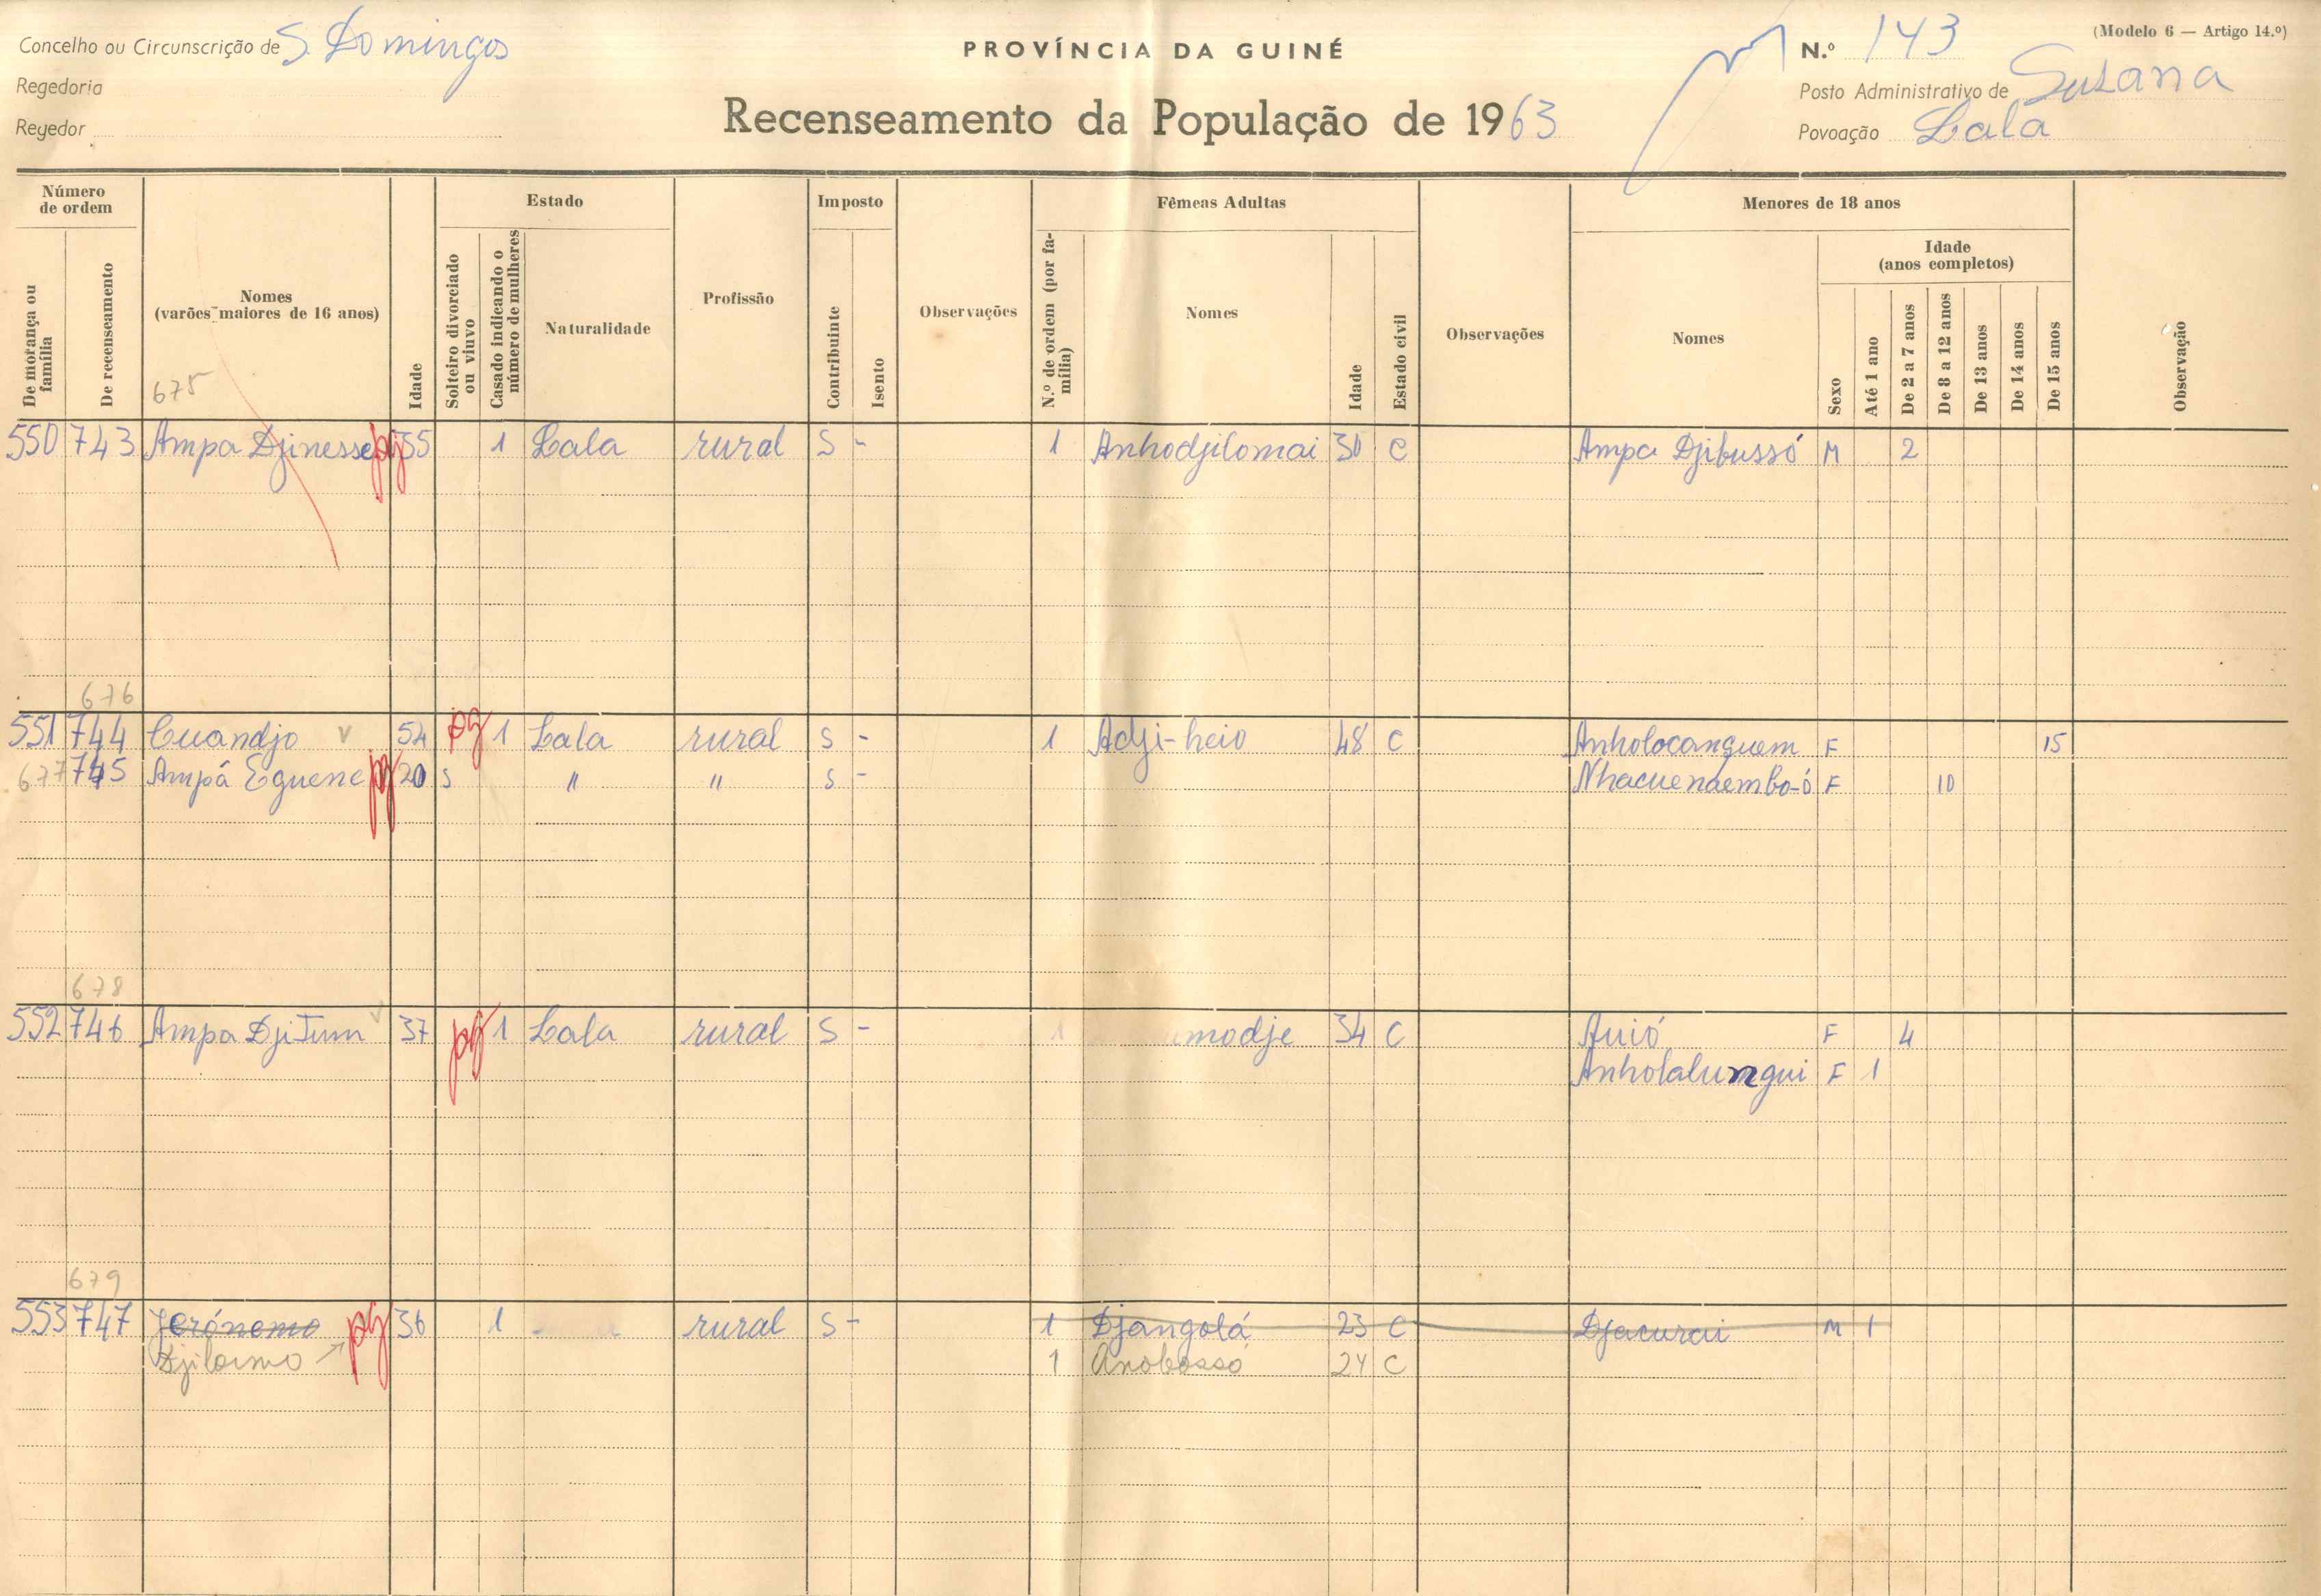 (Modelo 6 — Artigo 14.º)
Concelho ou Circunscrição de S. Domingos
PROVÍNCIA DA GUINÉ
N.º 143
Regedoria
Posto Administrativo de Suzana
Regedor
Recenseamento da População de 1963
Povoação Lala
Número de ordem
De morança ou família
De recenseamento
Nomes
(varões maiores de 16 anos)
Idade
Estado
Solteiro divorciado ou viuvo
Casado indicando o número de mulheres
Naturalidade
Profissão
Imposto
Contribuinte
Isento
Observações
Fêmeas Adultas
N.º de ordem (por família)
Nomes
Idade
Estado civil
Observações
Menores de 18 anos
Nomes
Sexo
Idade
(anos completos)
Até 1 ano
De 2 a 7 anos
De 8 a 12 anos
De 13 anos
De 14 anos
De 15 anos
Observação
675
550 743 Ampa Djinesse pg 35 1 Lala rural S - 1 Anhodjilomai 30 C Ampa Djibussó M 2
676
551 744 Cuandjo 54 pg 1 Lala rural S - 1 Adji-heio 48 C Anholocanguem F 15
677 745 Ampá Eguene pg 20 S " " S - Nhacuenaembo-ó F 10
678
552 746 Ampa DjiTum 37 pg 1 Lala rural S - 1 modje 34 C Auió F 4
Anholalumgui F 1
679
553 747 Jerónemo pg 36 1 rural S - 1 Djangolá 23 C Djacurai M 1
Djiloimo 1 Anobossó 24 C